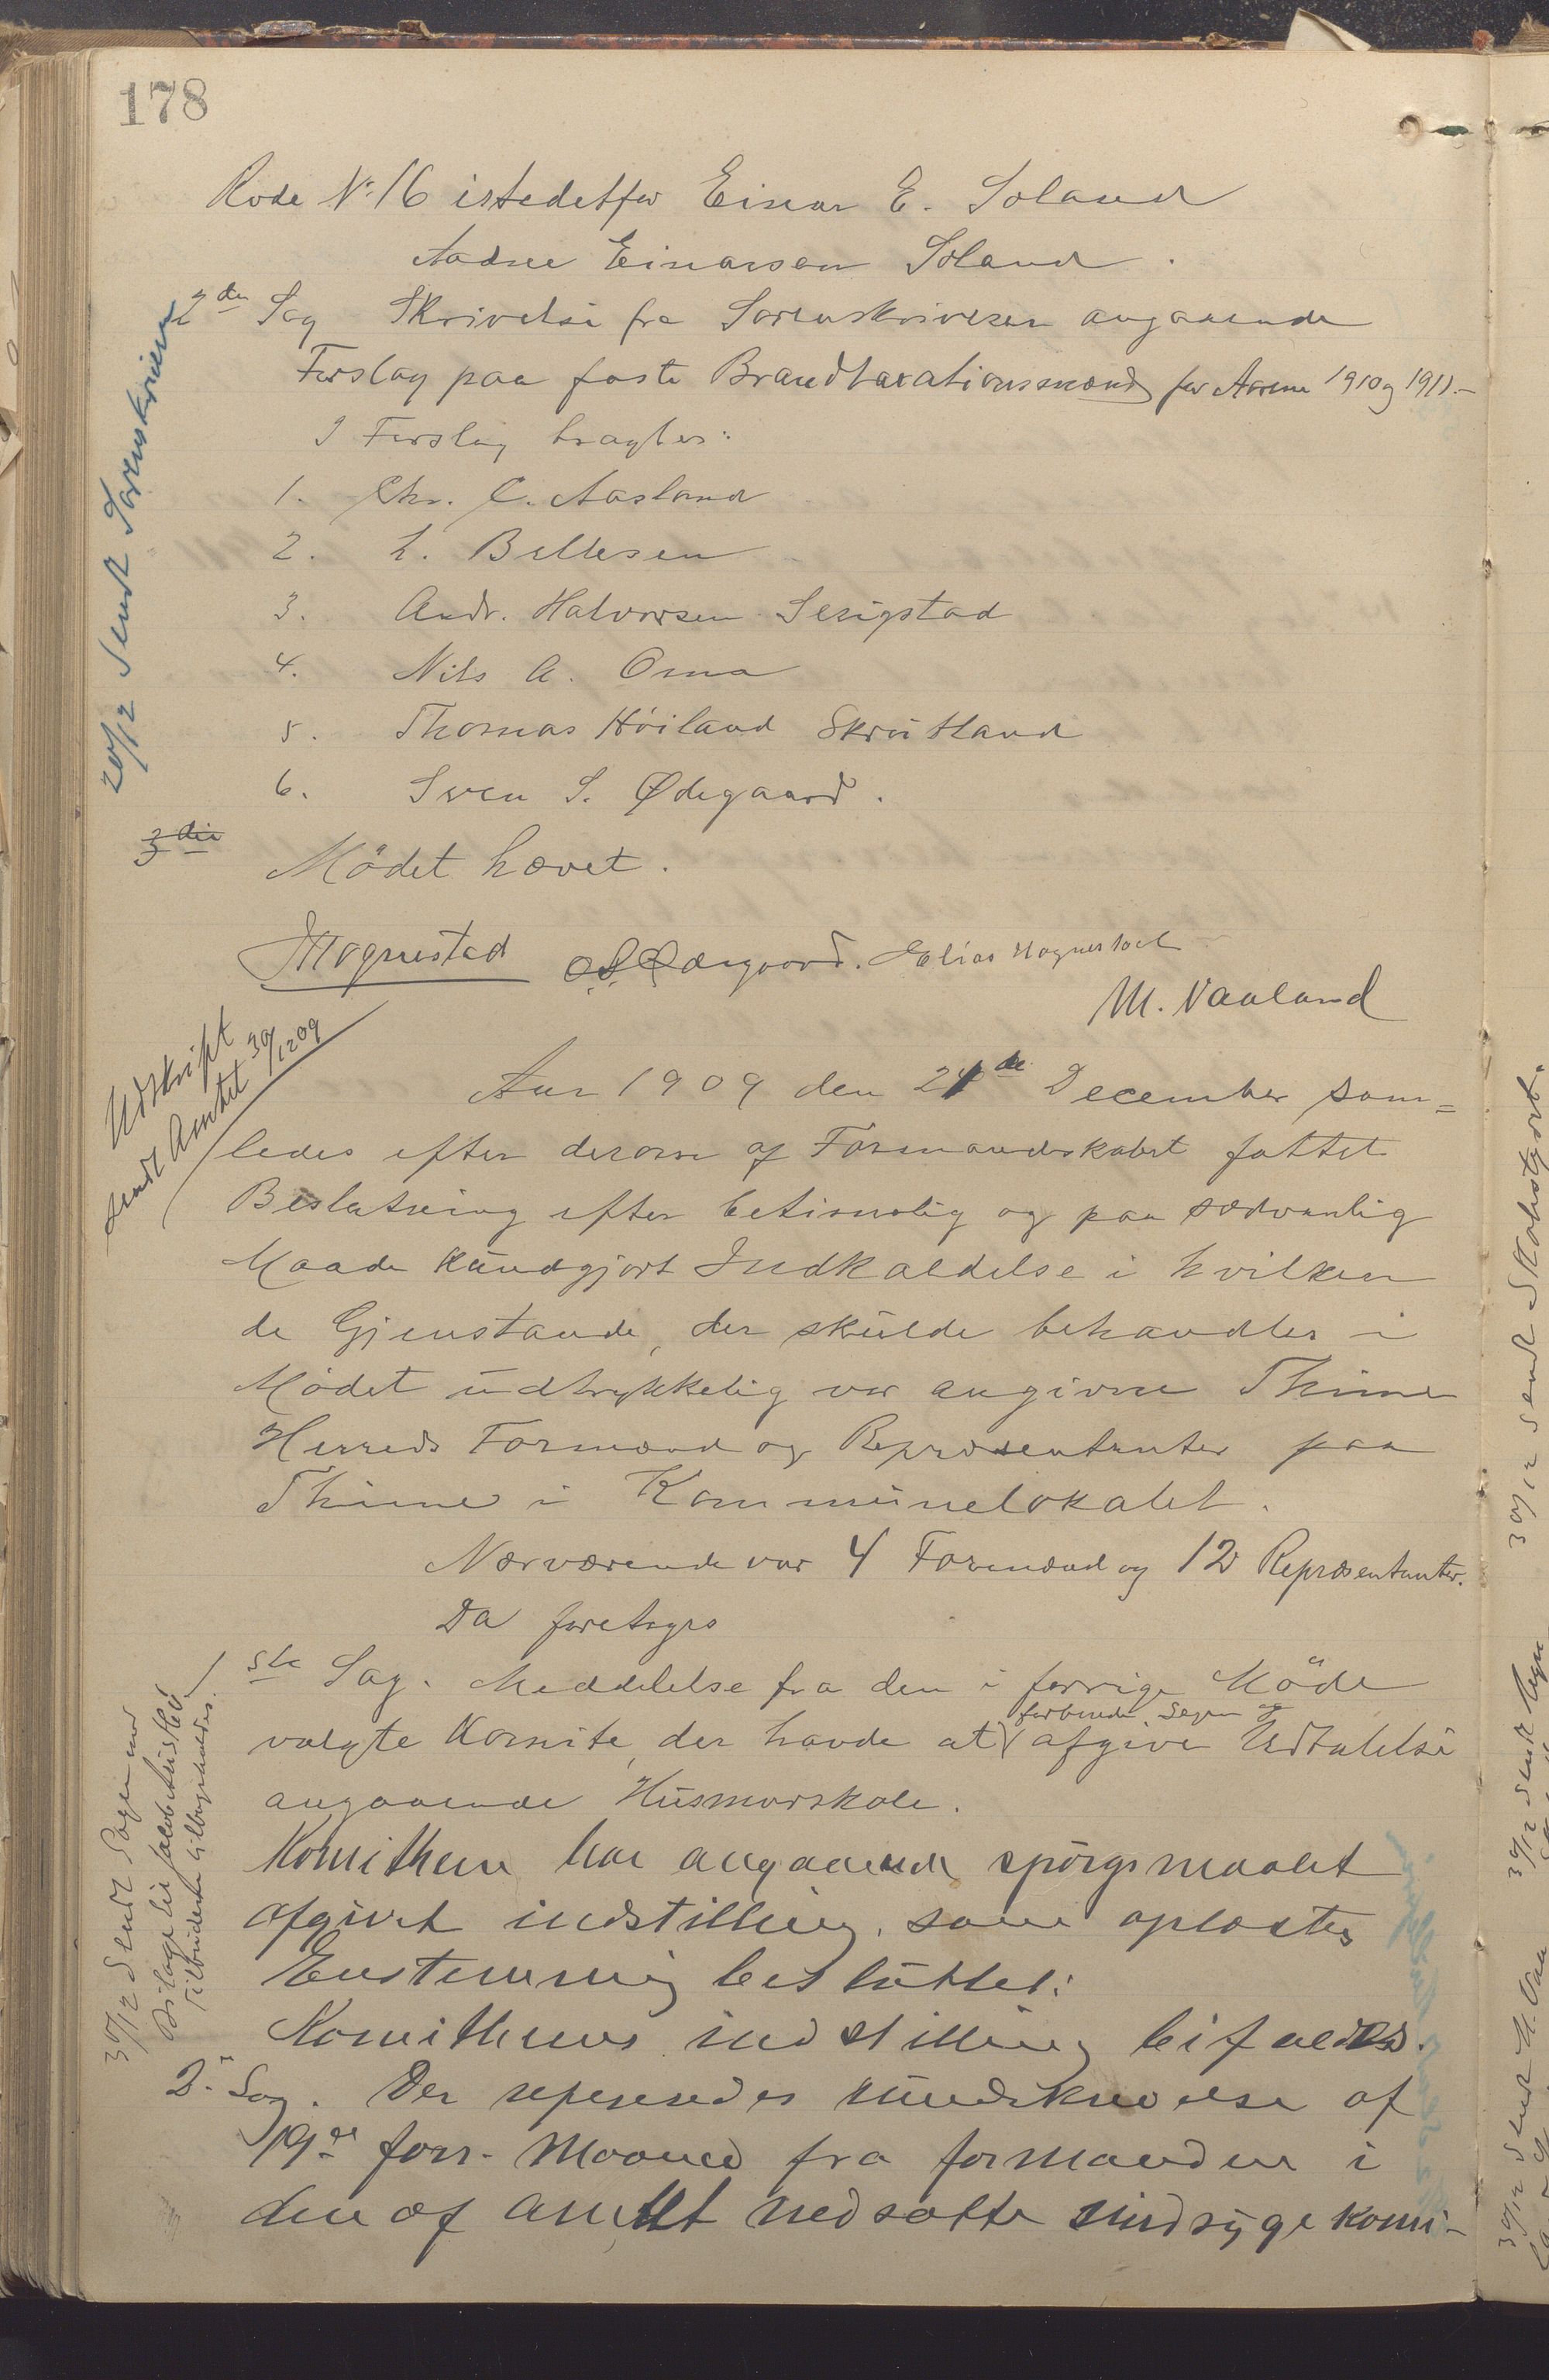 178
Rode No 16 istedetfor Einar E. Soland
Aadne Einarsen Soland.
2den Sag Skrivelse fra Sorenskriveren angaaende
Forslag paa faste Brandtaxationsmænd for Aarene 1910 og 1911.-
I Forslag bragtes:
1. Chr. C. Aasland
2. L. Bellesen
3. Andr. Halvorsen Serigstad
4. Nils A. Oma
5. Thomas Höiland Skrutland
6. Sven S. Ødegaard.
20/12 Sendt Sorenskriveren
3die
Mödet hævet.
Mognestad Ødegaard. Elias Hognestad
M. Vaaland
Udskrift
sendt Amtet 30/12 09
Aar 1909 den 21de December sam=
ledes efter derom af Formandskabet fattet
Beslutning efter betimelig og paa sædvanlig
Maade kundgjort Indkaldelse i hvilken
de Gjenstande, der skulde behandles i
Mödet udtrykkelig var angivne Thime
Herreds Formænd og Repræsentanter paa
Thime i Kommunelokalet.
Nærværende var 4 Formænd og 12 Repræsentanter.
Da foretoges
1ste Sag. Meddelelse fra den i forrige Möde
valgte Komite, der havde at forberede Sagen og afgive Udtalelse
angaaende Husmorskole.
Komitheen har angaaende spörgsmaalet
afgivet indstilling, som oplæstes
Enstemmig besluttet:
Komitheens indstilling bifaldes.
30/12 Sendt Sagen med
Bilage til
Tilbudene tilbageholdes.
2. Sag. Der refereredes rundskrivelse af
19de forr. Maaned fra formanden i
den af amtet nedsatte sindsyge komi-
30/12 sendt Skolestyret.
30/12 sendt
30/12 sendt